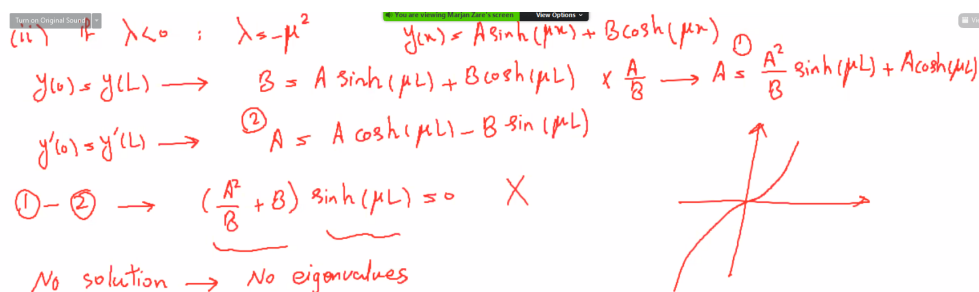 Turn on Original Sound
You are viewing Marjan Zare's screen View Options
(ii) if λ<0 : λ=-μ² y(x) = A sinh(μx) + B cosh(μx)
y(0) = y(L) → B = A sinh(μL) + B cosh(μL) × A/B → A ① = A²/B sinh(μL) + A cosh(μL)
y'(0) = y'(L) → ② A = A cosh(μL) - B sin(μL)
① - ② → (A²/B + B) sinh(μL) = 0 X
No solution → No eigenvalues